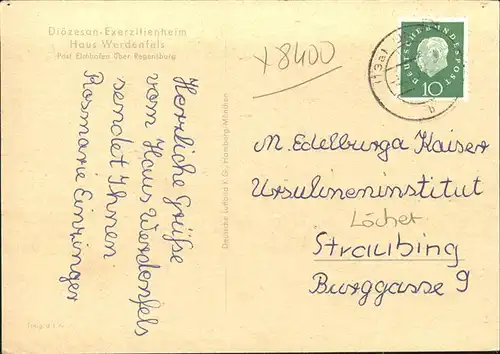 Diözesan-Exerzitienheim
Haus Werdenfels
Post Etterzhofen über Regensburg
x 8400
Herzliche Grüße
vom Haus Werdenfels
sendet Ihnen
Rosmarie Einzinger
Deutsche Luftbild K. G., Hamburg-München
DEUTSCHE BUNDESPOST
10
(13a)
b
M. Edelburga Kaiser
Ursulineninstitut
Löcher
Straubing
Burggasse 9